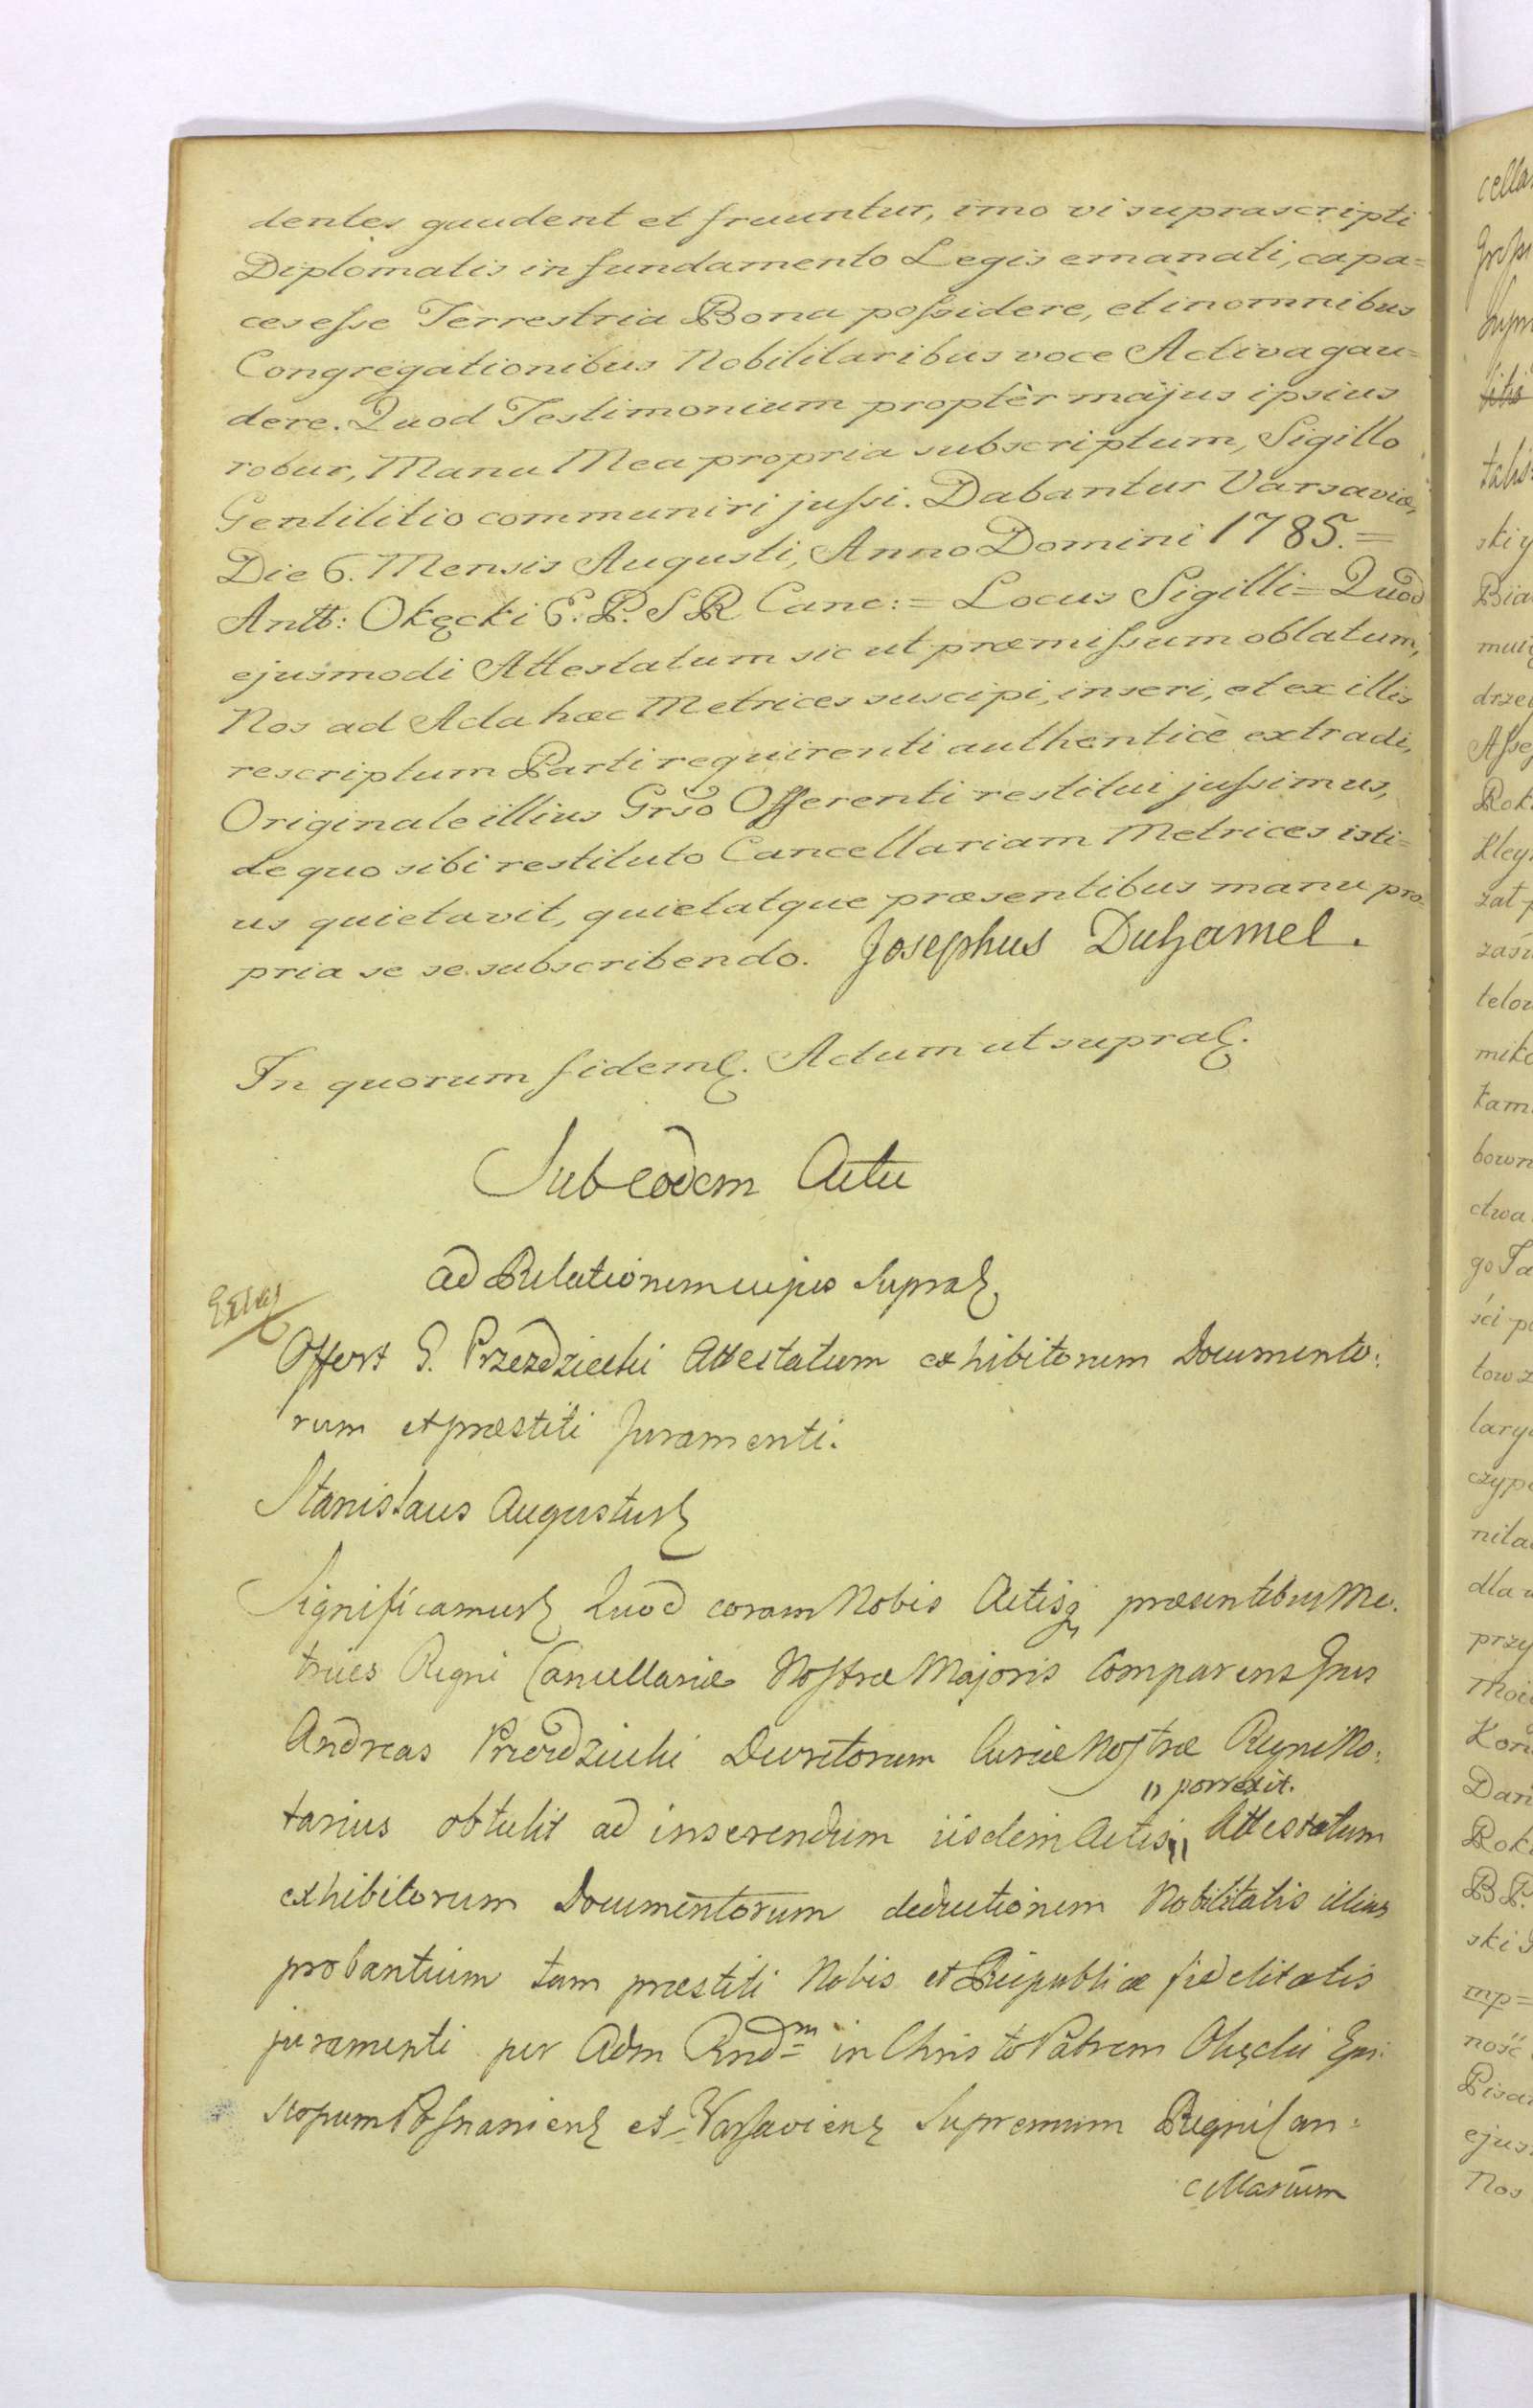 dentes gaudent et fruuntur, imo vi suprascripti
Diplomatis in fundamento Legis emanati, capa=
ces esse Terrestria Bona possidere, et in omnibus
Congregationibus Nobilitaribus voce Activa gau=
dere. Quod Testimonium proptèr majus ipsius
robur, Manu Mea propria subscriptum, Sigillo
Gentilitio communiri jussi. Dabantur Varsaviæ,
Die 6. Mensis Augusti, Anno Domini 1785. =
Antt: Okęcki E. P. S R Canc: = Locus Sigilli = Quod
ejusmodi Attestatum sic ut præmissum oblatum,
Nos ad Acta hæc Metrices suscipi, inseri, et ex illis
rescriptum Parti requirenti authenticè extradi,
Originale illius Grso Offerenti restitui jussimus,
de quo sibi restituto Cancellariam Metrices isti=
us quietavit, quietatque præsentibus manu pro=
pria se se subscribendo. Josephus DuHamel.
In quorum fidem. Actum ut supra.
Sub eodem Actu
ad Relationem cujus supra
Offert G. Przezdziecki Attestatum exhibitorum Documento:
rum et præstiti Juramenti.
Stanislaus Augustus
Significamus Quod coram Nobis Actisq præsentibus Me.
trices Regni Cancellariæ Nostræ Majoris Comparens Grus
Andreas Przezdziecki Decretorum Curiæ Nostræ Regni No:
" porrexit.
tarius obtulit ad inserendum iisdem Actis " Attestatum
exhibitorum Documentorum deductionem Nobilitatis illius
probantium tam præstiti Nobis et Reipublicæ fidelitatis
juramenti per Adm Rndm in Christo Patrem Okęcki Epi:
scopum Posnaniens et Varsaviens Supremum Regni Can:
cellarium